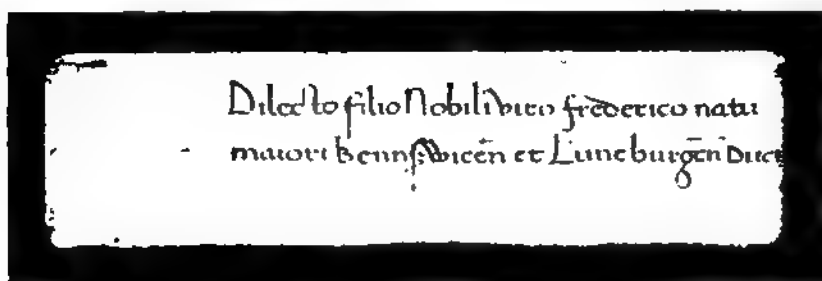 Dilecto filio Nobili viro frederico natu
maiori Brunswicen̄ et Luneburgen̄ Duci